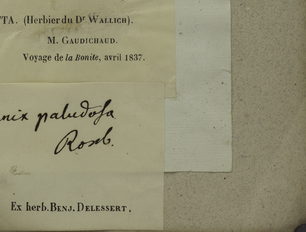 TTA. (Herbier du Dr Wallich).
M. Gaudichaud.
Voyage de la Bonite, avril 1837.
nix paludosa
Roxb.
Ex herb. Benj. Delessert.